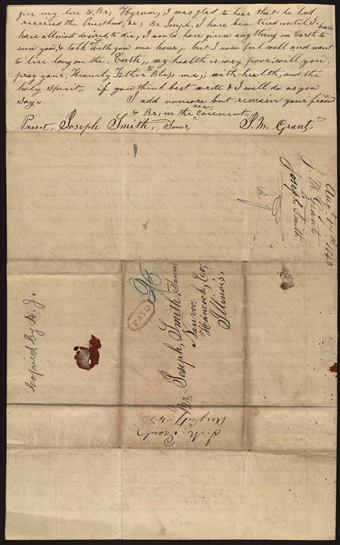 give my love to, Br, Hyrum, I was glad to hear that he had
received the Priesthood, &c; Br Joseph, I have been tried until I have
have allmost desired to die, I would, have given any thing on Earth to
seen you, & talk with you one hour, but I now feel well and want
to live long on the Earth, my health is very poor; will you
pray your, Heavenly Father Bless me; with health, and the
holy Spirit. if you think best write & I will do as you
Say. I add no more but remain your friend
& Br, in the new Covenent,
Preset, Joseph Smith, Senr, J. M. Grant,
Augt 17th 1843
J. M Grant
Joseph Smith
PAID
25
Mr Joseph, Smith,
Nauvoo,
Hancock, Co,
Illinois,
J. M. Grant
Augt 17—43
Copied by A. J.